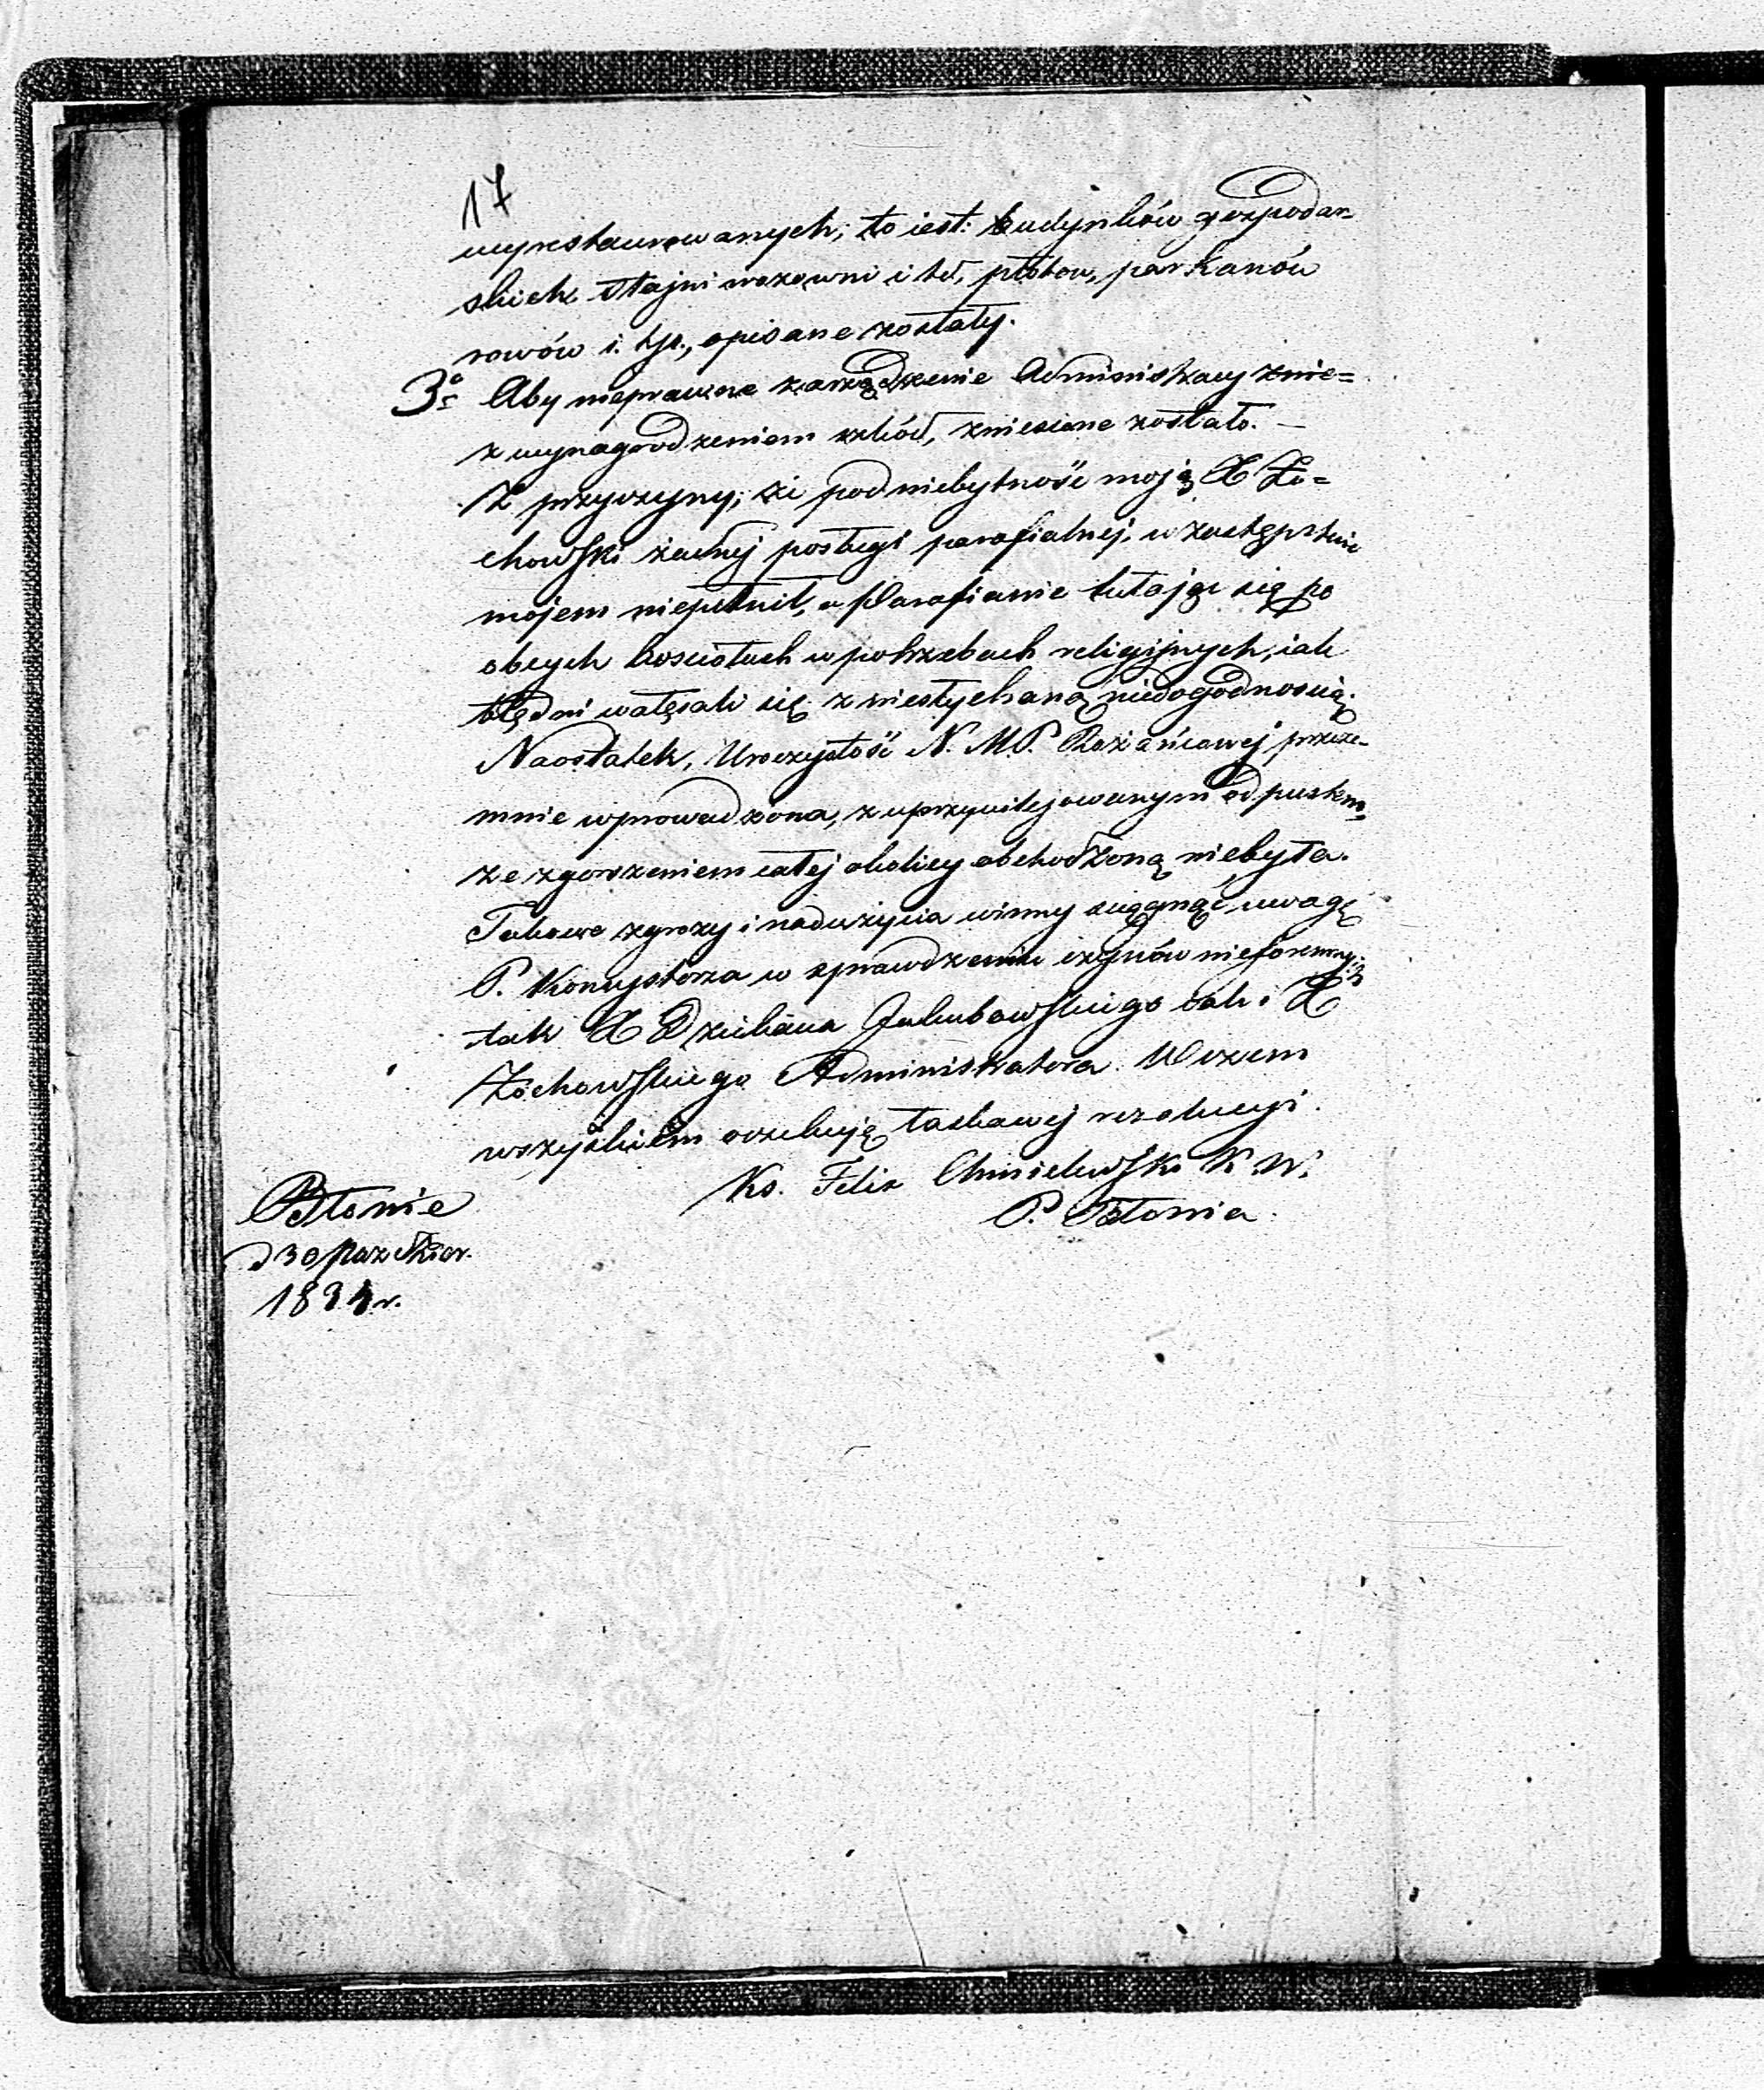 17
wyrestaurowanych; to iest: budynków gospodar-
skich stajni wozowni i td, płotow, parkanów
rowów i. tp., opisane zostały.
3º Aby nieprawne zarządzenie Administracy znie=
z wynagrodzeniem szkód, zniesione zostało. —
Z przyczyny; że pod niebytność moją X Żo=
chowski żadnej posługi parafialnej, w zastępstwie
mojem niepełnił, a Parafianie tułając się po
obcych kosciołach w potrzebach religijnych, iak
błędni wałęsali się z niesłychaną niedogodnoscią.
Naostatek, Uroczystość N. M P. Rożańcowej, przeze-
mnie wprowadzona, z uprzywilejowanym odpustem,
ze zgorszeniem całej okolicy obchodzoną niebyła.
Takowe zgrozy i nadużycia winny ściągnąć uwagę
P. Konsystorza w sprawdzeniu czynów nieforemnych
tak X Dziekana Jakubowskiego iak i X
Żochowskiego Administratora. W czem
wszystkiem oczekuję łaskawej rezolucyi.
Ks. Felix Chmielewski K W.
P. Błonia.
Błonie
d 30 Pazdzier.
183 r.